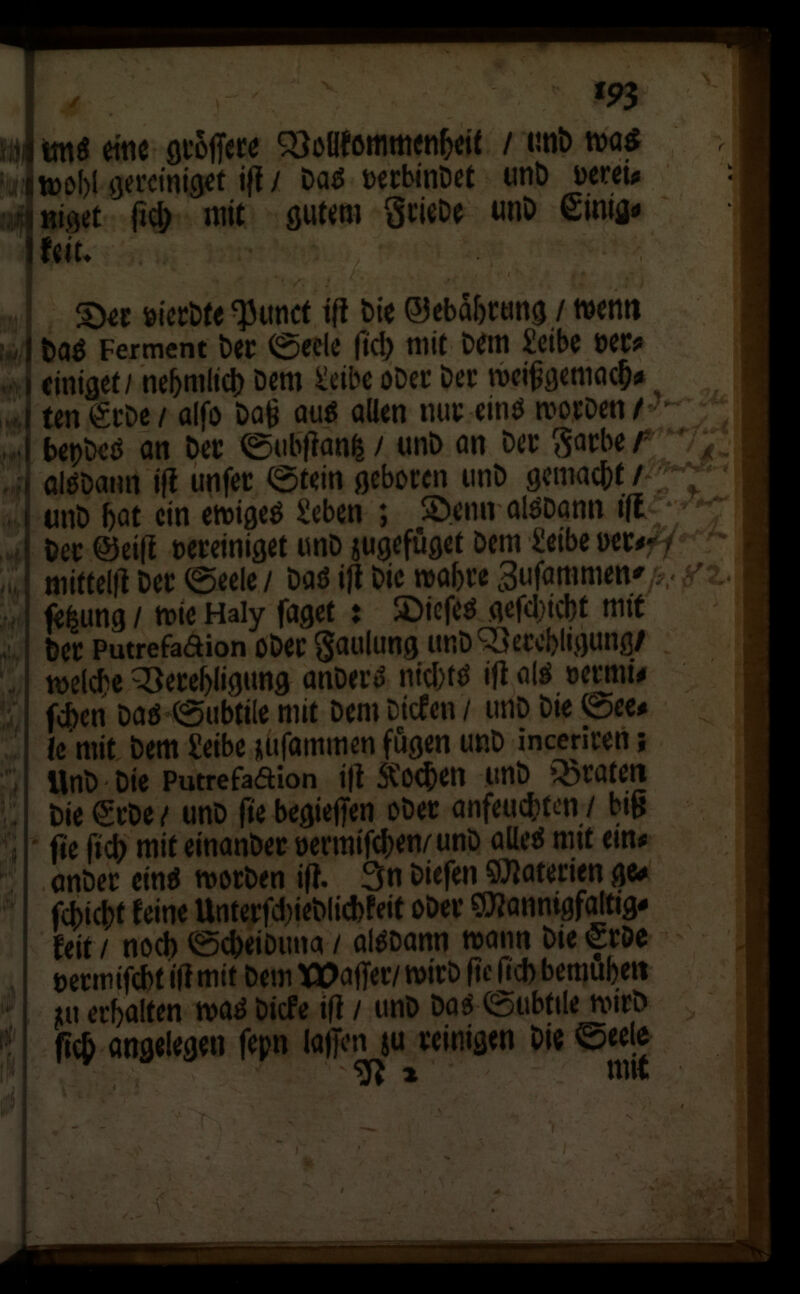 193
uns eine groͤſſere Vollkommenheit / und was
wohl gereiniget iſt / das verbindet und verei⸗
niget ſich mit gutem Friede und Einig⸗
keit.
Der vierdte Punct iſt die Gebaͤhrung / wenn
das Ferment der Seele ſich mit dem Leibe ver⸗
einiget / nehmlich dem Leibe oder der weißgemach⸗
ten Erde / alſo daß aus allen nur eins worden /
beydes an der Subſtantz / und an der Farbe /
alsdann iſt unſer Stein geboren und gemacht /
und hat ein ewiges Leben ; Denn alsdann iſt
der Geiſt vereiniget und zugefuͤget dem Leibe ver⸗
mittelſt der Seele / das iſt die wahre Zuſammen⸗
ſetzung / wie Haly ſaget : Dieſes geſchicht mit
der Putrefaction oder Faulung und Verehligung /
welche Verehligung anders nichts iſt als vermi⸗
ſchen das Subtile mit dem dicken / und die See⸗
le mit dem Leibe zuſammen fuͤgen und inceriren ;
Und die Putrefaction iſt Kochen und Braten
die Erde / und ſie begieſſen oder anfeuchten / biß
ſie ſich mit einander vermiſchen / und alles mit ein⸗
ander eins worden iſt. In dieſen Materien ge⸗
ſchicht keine Unterſchiedlichkeit oder Mannigfaltig⸗
keit / noch Scheidung / alsdann wann die Erde
vermiſcht iſt mit dem Waſſer / wird ſie ſich bemuͤhen
zu erhalten was dicke iſt / und das Subtile wird
ſich angelegen ſeyn laſſen zu reinigen die Seele
N 2 mit